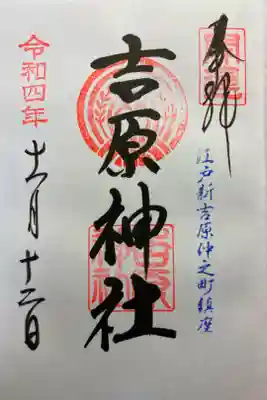 奉拝
江戸新吉原仲之町鎮座
吉原神社
令和四年
十一月十二日